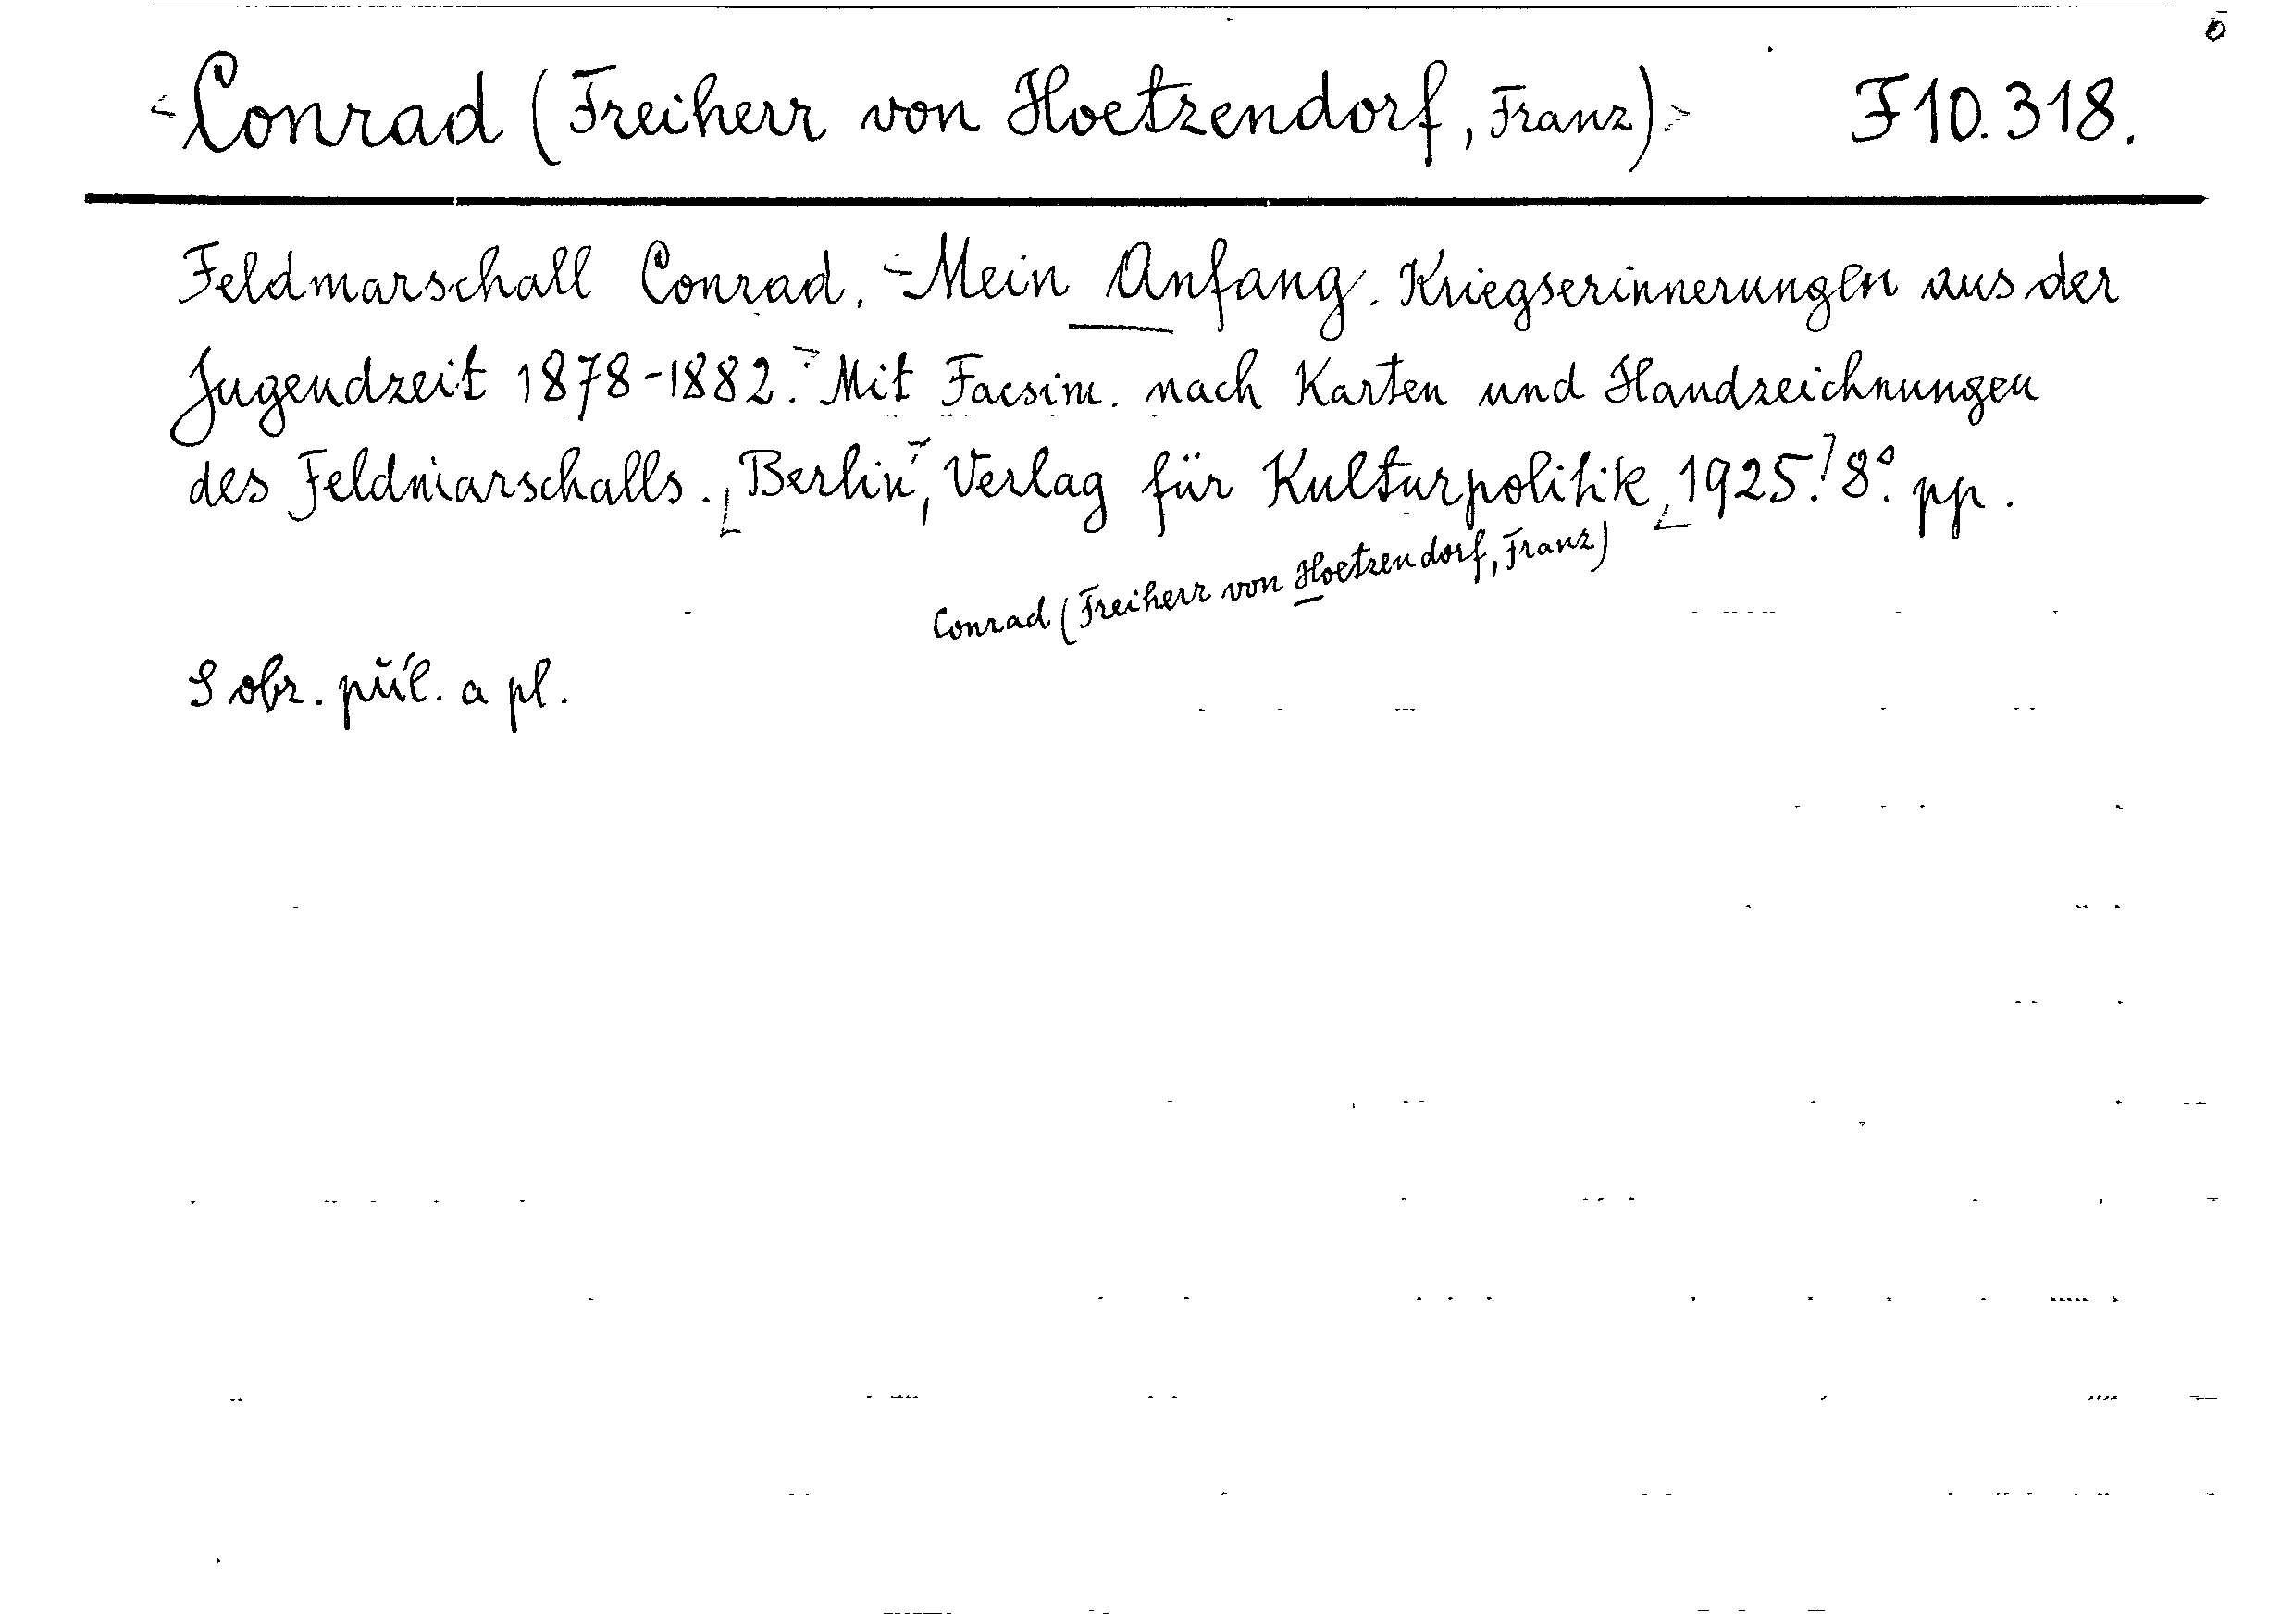 Conrad (Freiherr von Hoetzendorf, Franz) F 10.318.
Feldmarschall Conrad. Mein Anfang. Kriegserinnerungen aus der
Jugendzeit 1878-1882. Mit Facsim. nach Karten und Handzeichnungen
des Feldmarschalls. Berlin, Verlag für Kulturpolitik, 1925. 8°. pp.
Conrad (Freiherr von Hoetzendorf, Franz)
S obr. příl. a pl.